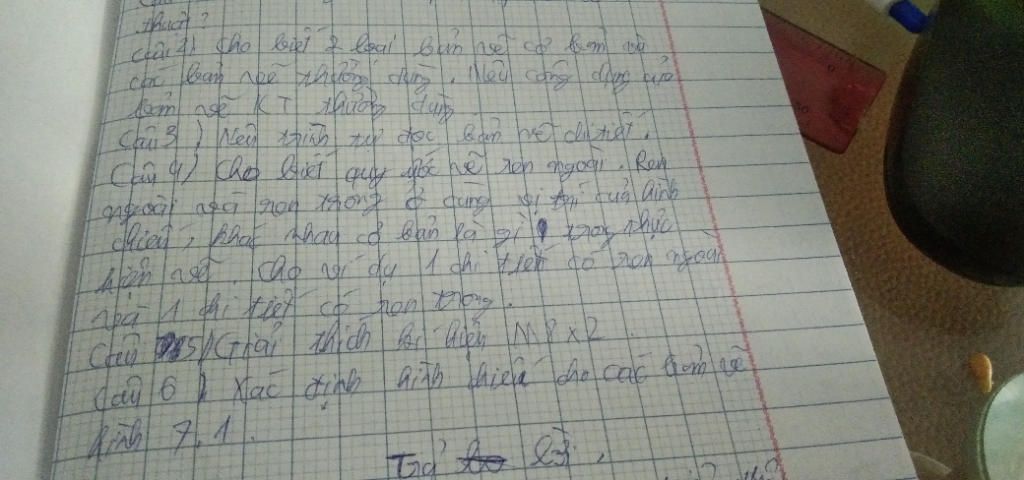 thuật?
Câu 2) Cho biết 2 loại bản vẽ cơ bản và
các bản vẽ thường dùng. Nêu công dụng của
bản vẽ KT thường dùng
Câu 3) Nêu trình tự đọc bản vẽ chi tiết.
Câu 4) Cho biết quy ước vẽ ren ngoài. Ren
ngoài và ren trong ở cùng vị trí của hình
chiếu, khác nhau cơ bản là gì trong thực
hiện vẽ. Cho ví dụ 1 chi tiết có ren ngoài
và 1 chi tiết có ren trong.
Câu 5) Giải thích kí hiệu M8x2
Câu 6) Xác định hình chiếu cho các bản vẽ
hình 7.1.
Trả lời.